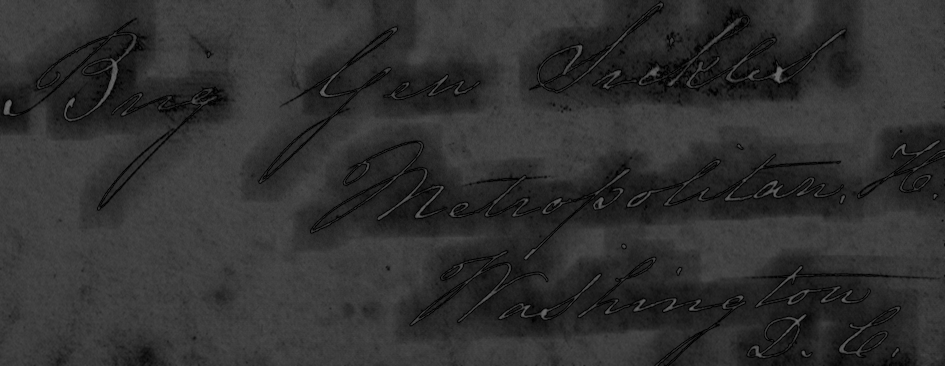 Brig Gen Sickles
Metropolitan, H.
Washington
D. C.